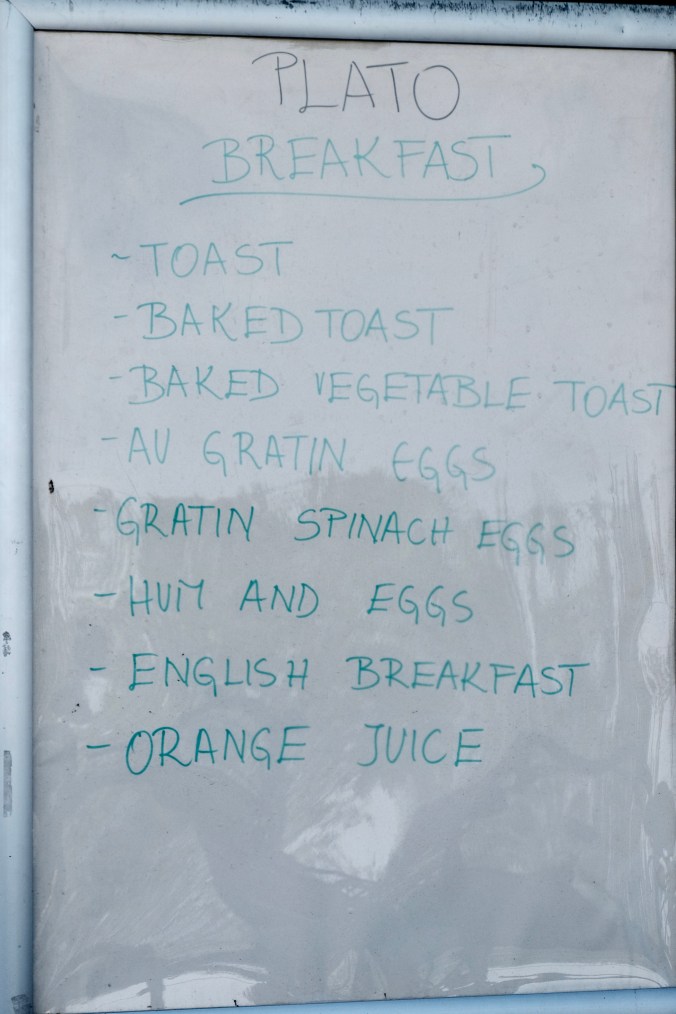 PLATO
BREAKFAST
~ TOAST
- BAKED TOAST
- BAKED VEGETABLE TOAST
- AU GRATIN EGGS
- GRATIN SPINACH EGGS
- HUM AND EGGS
- ENGLISH BREAKFAST
- ORANGE JUICE